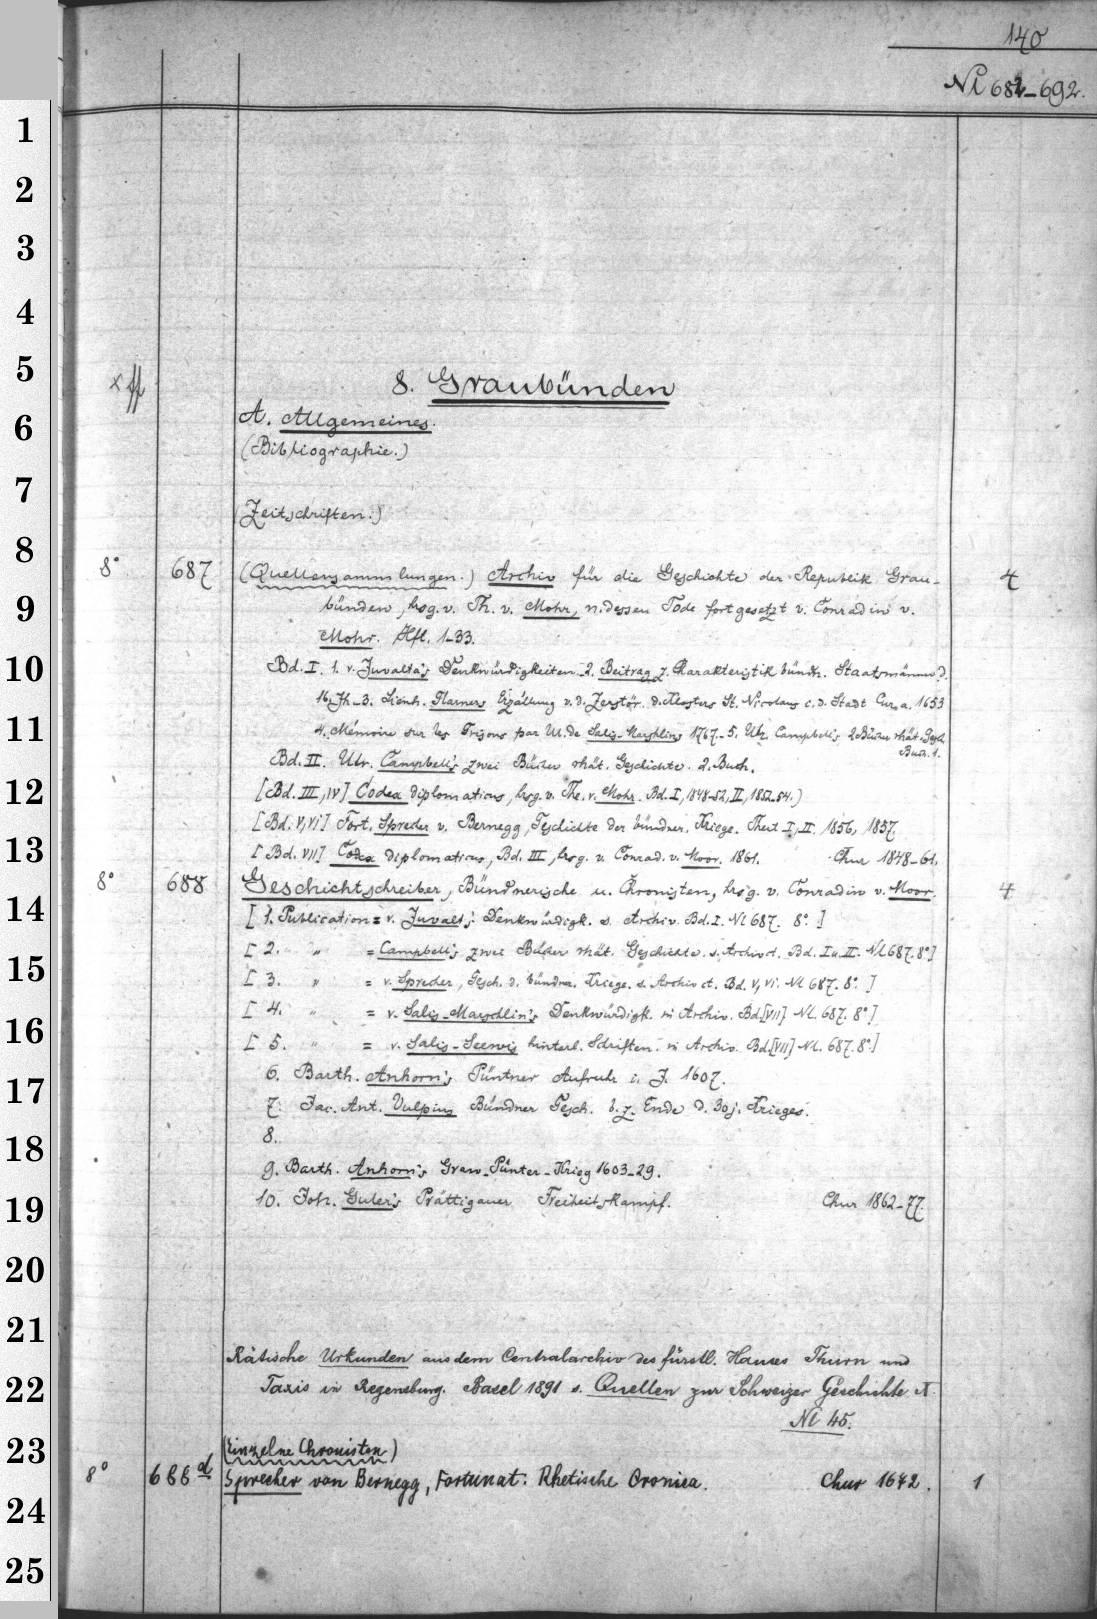 140
Nl 682-692.
8. Graubünden
A. Allgemeines.
(Bibliographie.)
(Zeitschriften.)
8° 687 (Quellensammlungen.) Archiv für die Geschichte der Republik Grau- 4
bünden, hrsg. v. Th. v. Mohr, n. dessen Tode fortgesetzt v. Conradin v.
Mohr. Hft. 1-33.
Bd. I. 1. v. Juvalta's Denkwürdigkeiten. 2. Beitrag z. Charakteristik bündn. Staatsmänner d.
16. Jh. 3. Lienh. Glarners Erzählung v. d. Zerstör. d. Klosters St. Nicolaus i. d. Stadt Cur, a. 1653
4. Mémoire sur les Grisons par Ul. de Salis-Marschlins 1767. 5. Ulr. Campbell's 2 Bücher rhät. Gesch.
Buch. 1.
Bd. II. Ulr. Campbell's zwei Bücher rhät. Geschichte. 2. Buch.
[Bd. III, IV] Codex diplomaticus, hrsg. v. Th. v. Mohr. Bd. I, 1848-52, II, 1852-54.)
[Bd. V, VI] Fort. Sprecher v. Bernegg, Geschichte der bündner. Kriege. Theil I, II. 1856, 1857.
[Bd. VII] Codex diplomaticus, Bd. III, hrsg. v. Conrad. v. Moor. 1861. Chur 1848-61.
8° 688 Geschichtschreiber, Bündnerische u. Chronisten, hrsg. v. Conradin v. Moor. 4
[1. Publication = v. Juvalt's Denkwürdigk. s. Archiv. Bd. I. Nl 687. 8°.]
[2. " " = Campbell's zwei Bücher rhät. Geschichte. s. Archiv ct. Bd. I u. II. Nl 687. 8°]
[3. " = v. Sprecher, Gesch. d. bündner. Kriege. s. Archiv ct. Bd. V, VI. Nl 687. 8°.]
[4. " = v. Salis-Marschlin's Denkwürdigk. in Archiv. Bd. [VII] Nl. 687. 8°]
[5. " " = v. Salis-Seewis hinterl. Schriften. in Archiv. Bd. [VII] Nl. 687. 8°.]
6. Barth. Anhorn's Püntner Aufruhr i. J. 1607.
7. Jac. Ant. Vulpius Bündner Gesch. b. z. Ende d. 30 j. Krieges.
8.
9. Barth. Anhorn's Graw-Pünter-Krieg 1603-29.
10. Joh. Guler's Prättigauer Freiheitskampf. Chur 1862-77.
Rätische Urkunden aus dem Centralarchiv des fürstl. Hauses Thurn und
Taxis in Regensburg. Basel 1891 s. Quellen zur Schweizer Geschichte X
Nl 45.
(Einzelne Chronisten)
8° 688 d Sprecher von Bernegg, Fortunat: Rhetische Cronica. Chur 1672. 1
1
2
3
4
5
6
7
8
9
10
11
12
13
14
15
16
17
18
19
20
21
22
23
24
25